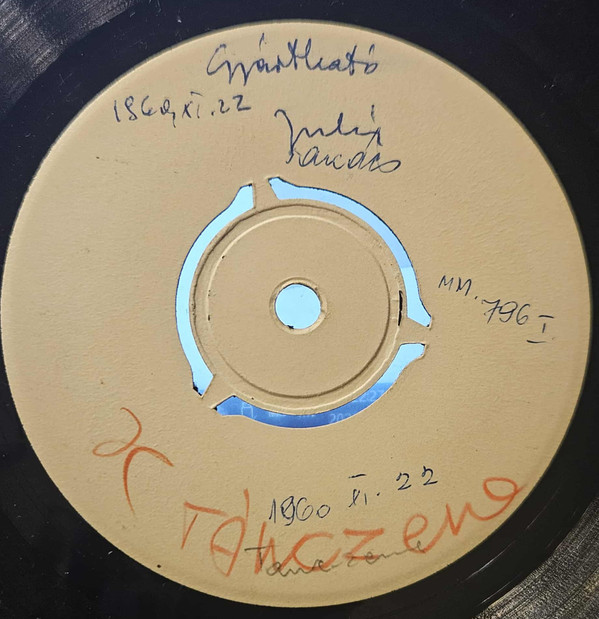 Gyártható
1960, XI. 22
Takács
MM. 796 I
1960 XI. 22
Tánczene
Tánczene